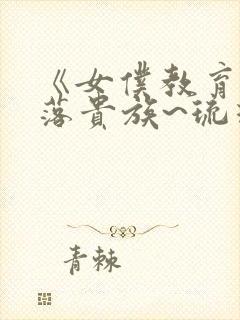 《女僕教育
落貴族~琉
青棘